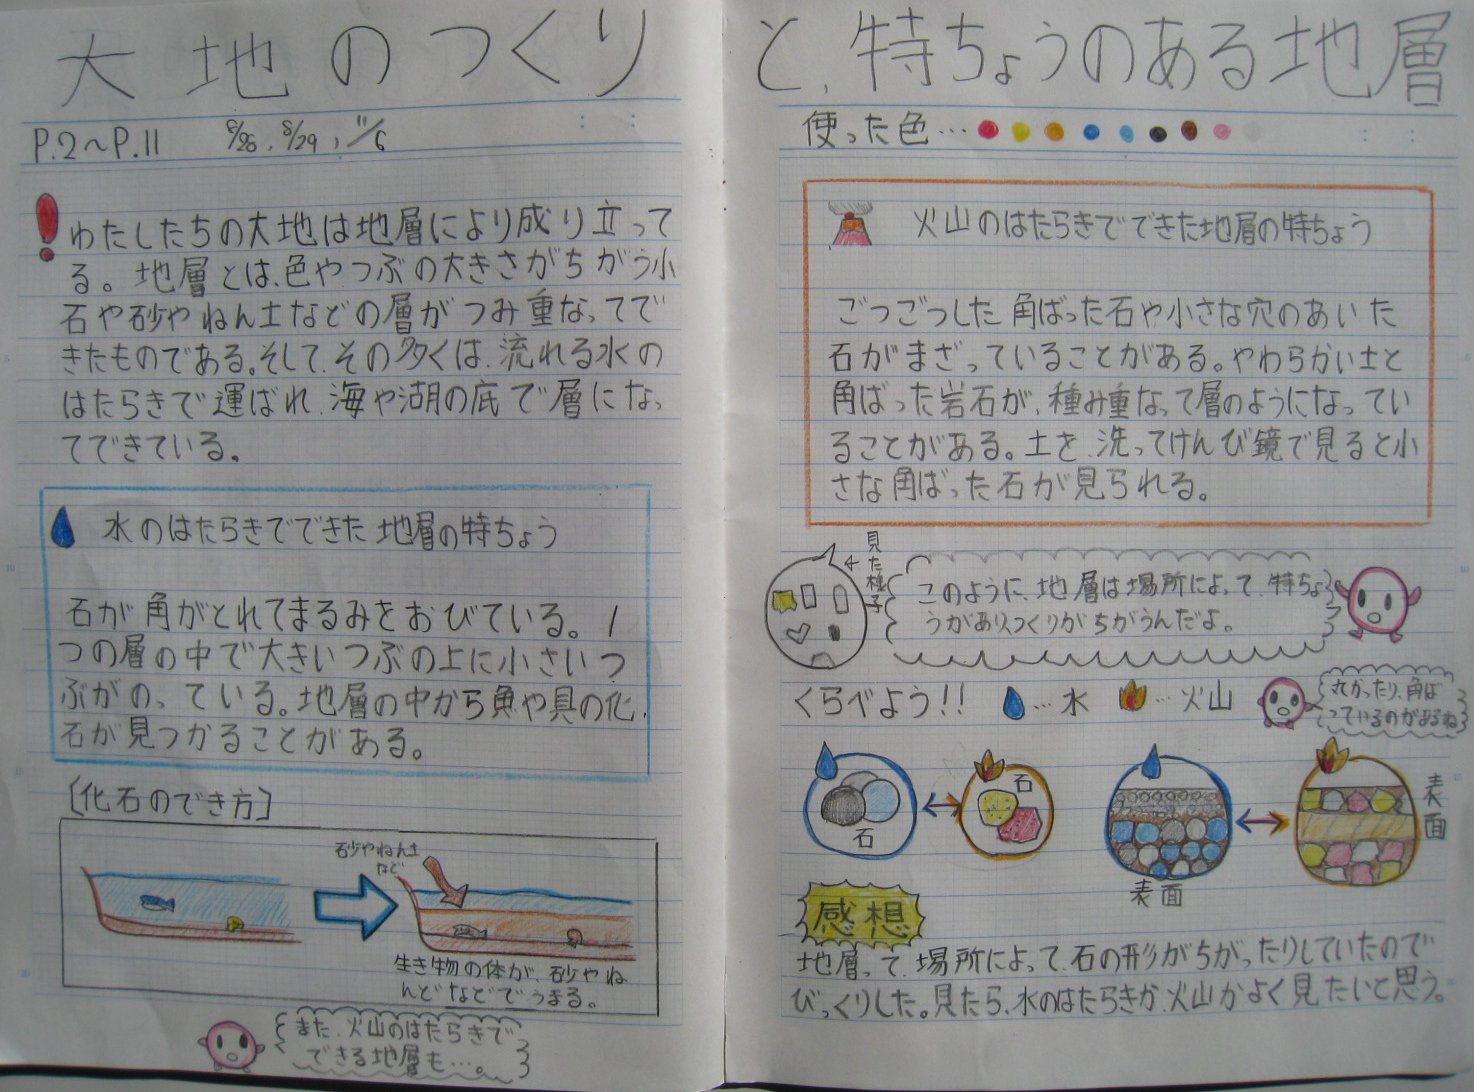 大地のつくりと、特ちょうのある地層
P.2〜P.11 8/26、8/29、11/6
わたしたちの大地は地層により成り立って
る。地層とは、色やつぶの大きさがちがう小
石や砂やねん土などの層がつみ重なってで
きたものである。そして、その多くは、流れる水の
はたらきで運ばれ、海や湖の底で層になっ
てできている。
水のはたらきでできた地層の特ちょう
石が角がとれてまるみをおびている。1
つの層の中で大きいつぶの上に小さいつ
ぶがのっている。地層の中から魚や貝の化
石が見つかることがある。
[化石のでき方]
砂やねん土
など
生き物の体が、砂やね
んどなどでうまる。
また、火山のはたらきで
できる地層も…。
使った色…
火山のはたらきでできた地層の特ちょう
ごつごつした角ばった石や小さな穴のあいた
石がまざっていることがある。やわらかい土と
角ばった岩石が、種み重なって層のようになってい
ることがある。土を、洗ってけんび鏡で見ると小
さな角ばった石が見られる。
見た様子
このように、地層は場所によって、特ちょ
うがありつくりがちがうんだよ。
くらべよう!! …水 …火山
丸かったり、角ば
っているのがあるね
石
石
表面
表面
感想
地層って、場所によって、石の形がちがったりしていたので
びっくりした。見たら、水のはたらきか、火山かよく見たいと思う。